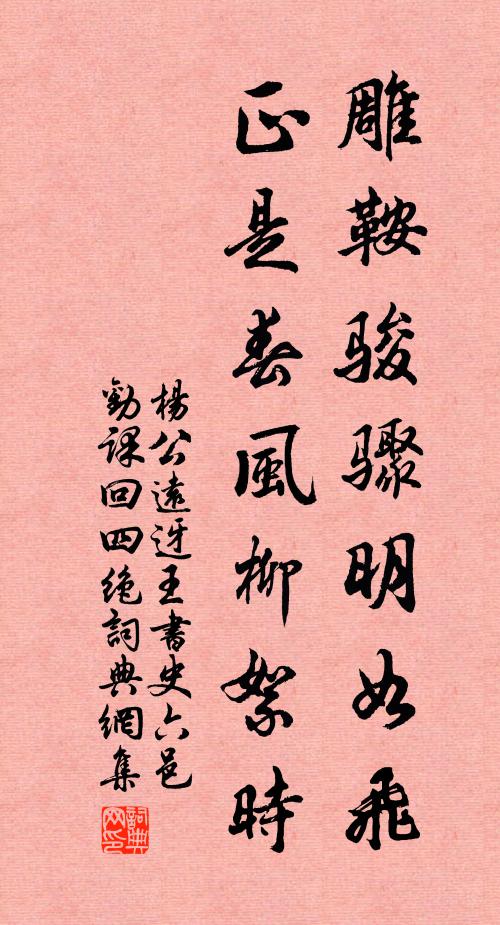 雕鞍駿驟明如飛
正是春風柳絮時
楊公遠迓王書史六邑
勸課回四絶詞典網集
詞典网印